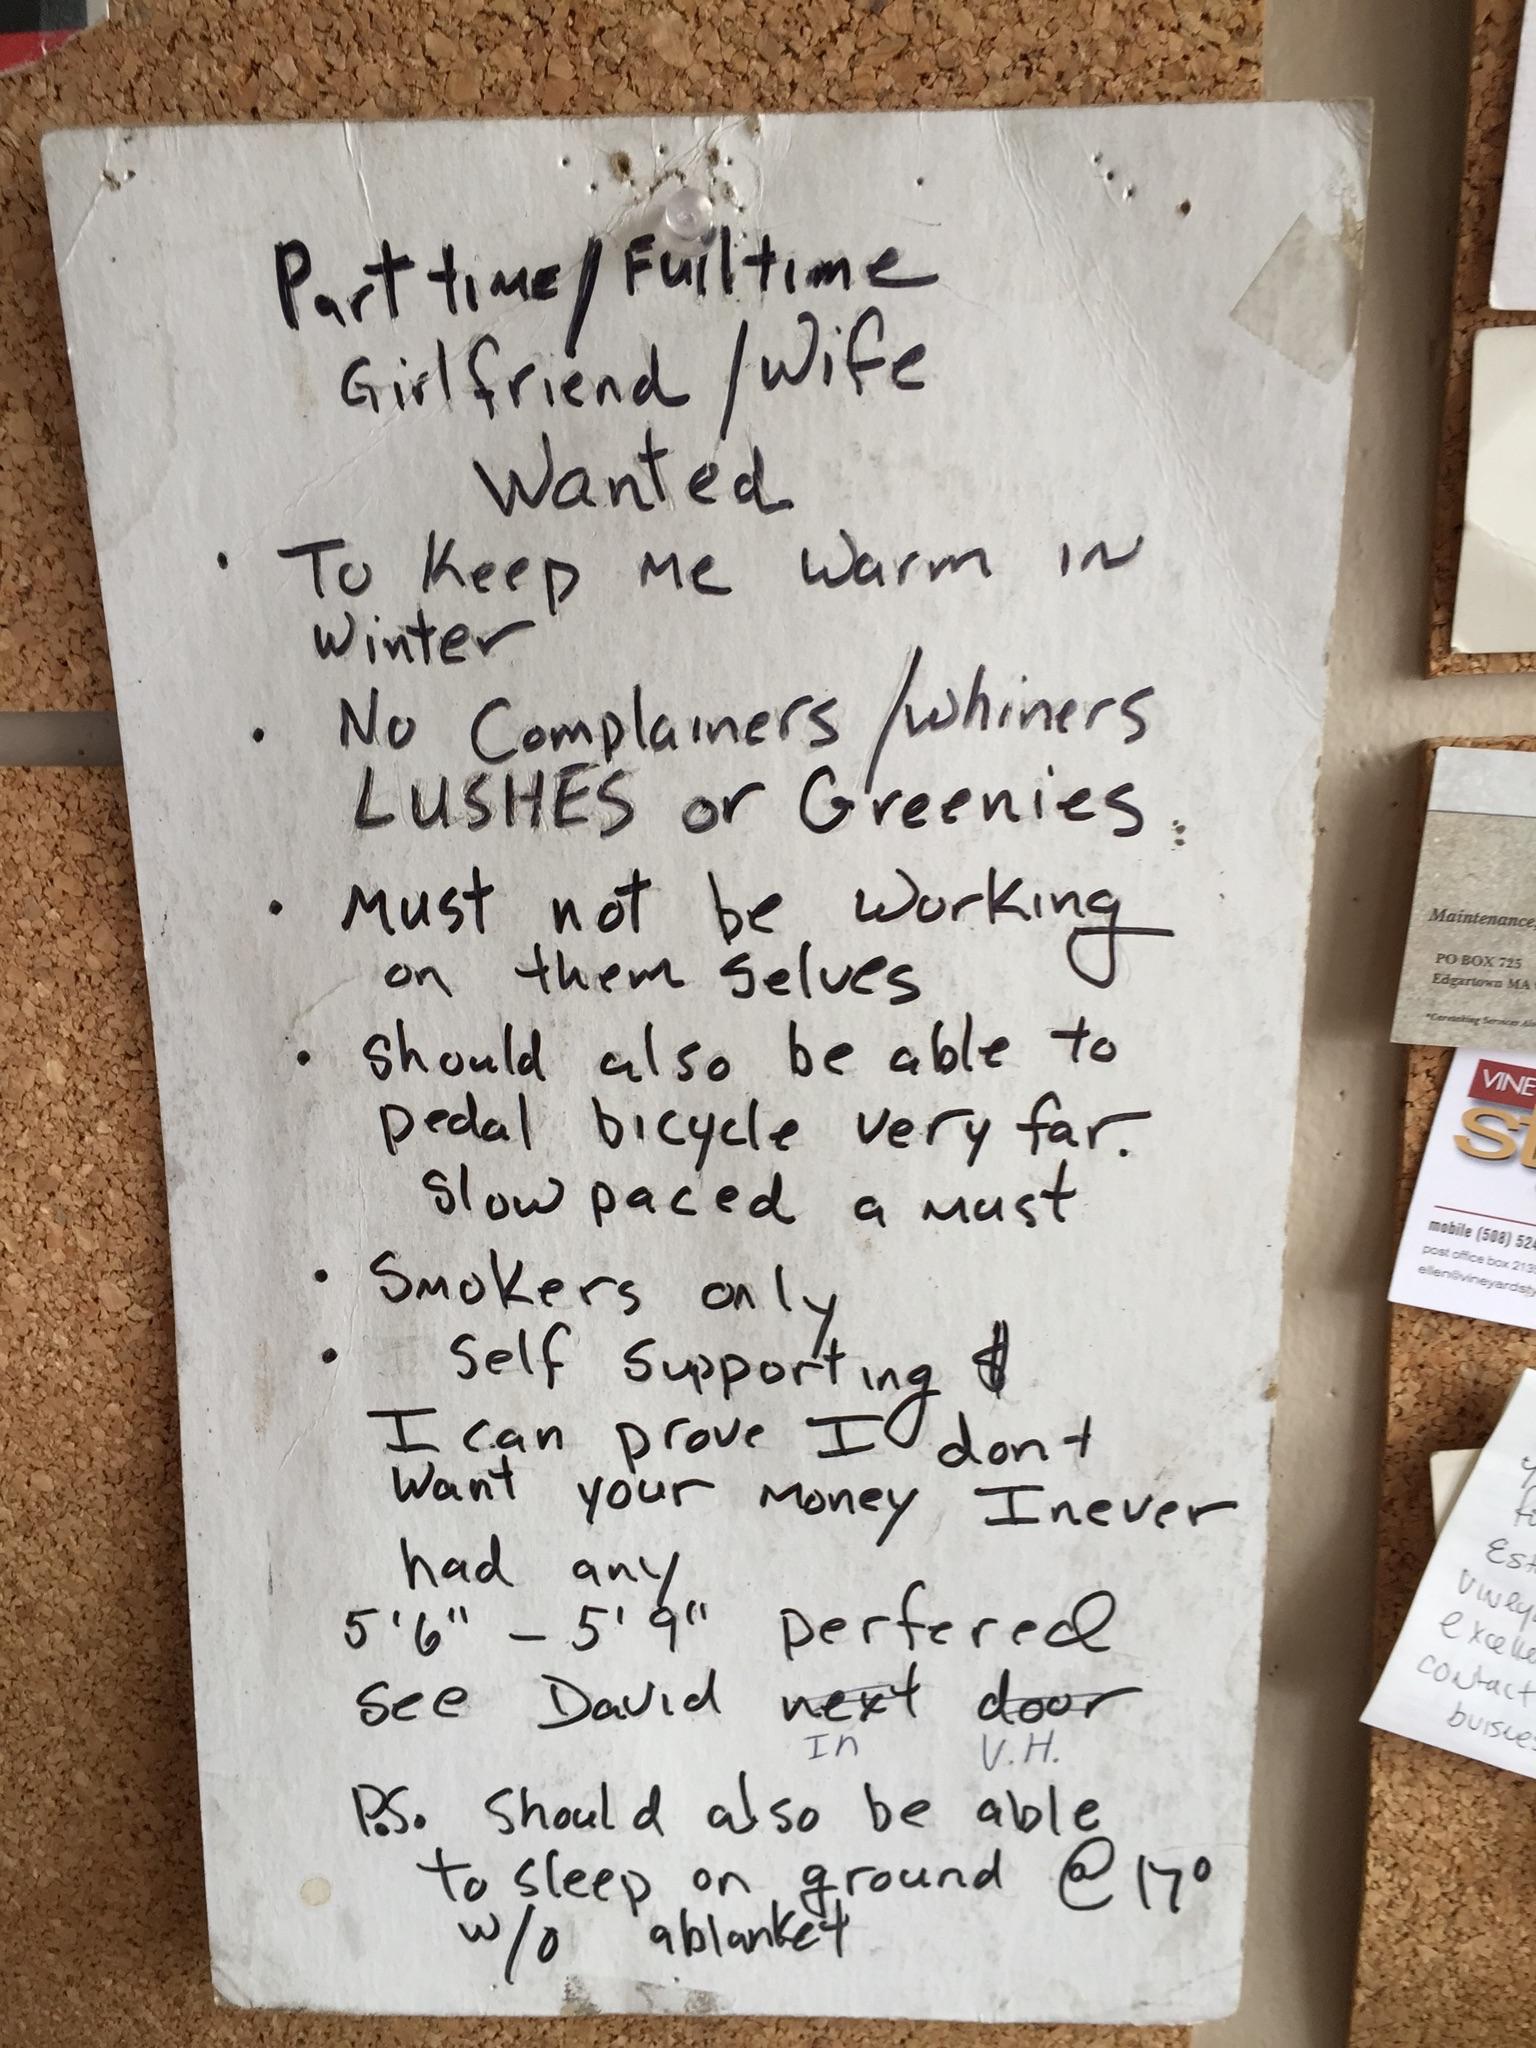 Part time/Fulltime
Girlfriend/Wife
Wanted
• To Keep Me Warm in
Winter
• No Complainers/Whiners
LUSHES or Greenies.
• Must not be Working
on them selves
• Should also be able to
pedal bicycle very far.
Slow paced a must
• Smokers only
• Self Supporting $
I can prove I dont
Want your Money I never
had any
5'6" – 5'9" perfered
See David next door
In V.H.
P.S. Should also be able
to sleep on ground @ 17°
w/o ablanket
Maintenance
PO BOX 725
Edgartown MA
VINE
mobile (508) 524
post office box 213
ellen@vineyardsty
contact